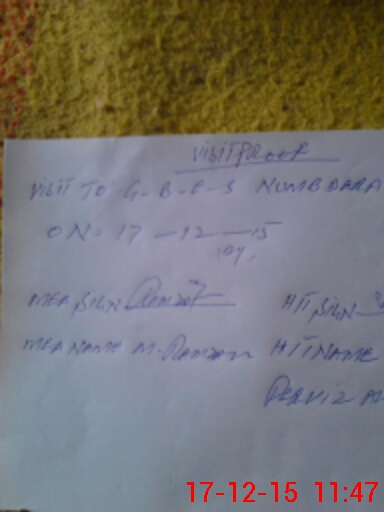 VISIT PROOF
VISIT TO G-B-P-S NUMBDARA
ON= 17-12-15
MEA SIGN Ramzan HT SIGN
MEA NAME M. Ramzan HT NAME
PERVIZ A
17-12-15 11:47